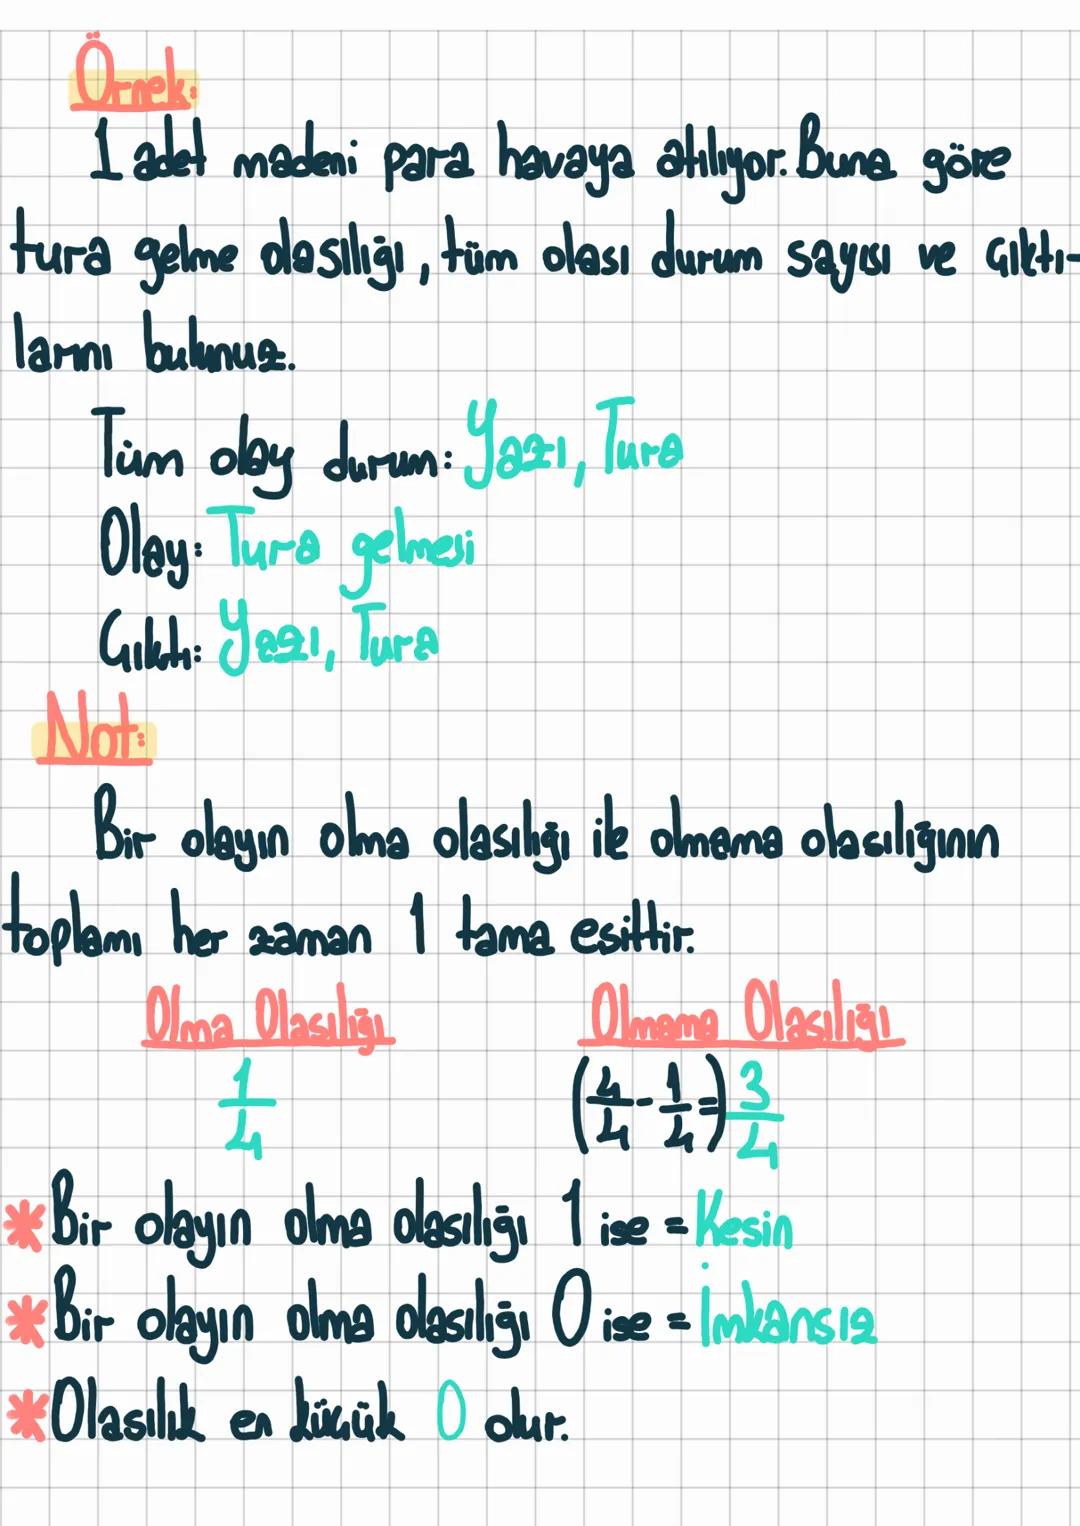 Örnek:
1 adet madeni para havaya atılıyor. Buna göre
tura gelme olasılığı, tüm olası durum sayısı ve çıktı-
larını bulunuz.
Tüm olay durum: Yazı, Tura
Olay: Tura gelmesi
Çıktı: Yazı, Tura
Not:
Bir olayın olma olasılığı ile olmama olasılığının
toplamı her zaman 1 tama eşittir.
Olma Olasılığı Olmama Olasılığı
1/4 (4/4 - 1/4 =) 3/4
* Bir olayın olma olasılığı 1 ise = Kesin
* Bir olayın olma olasılığı 0 ise = İmkansız
* Olasılık en küçük 0 olur.